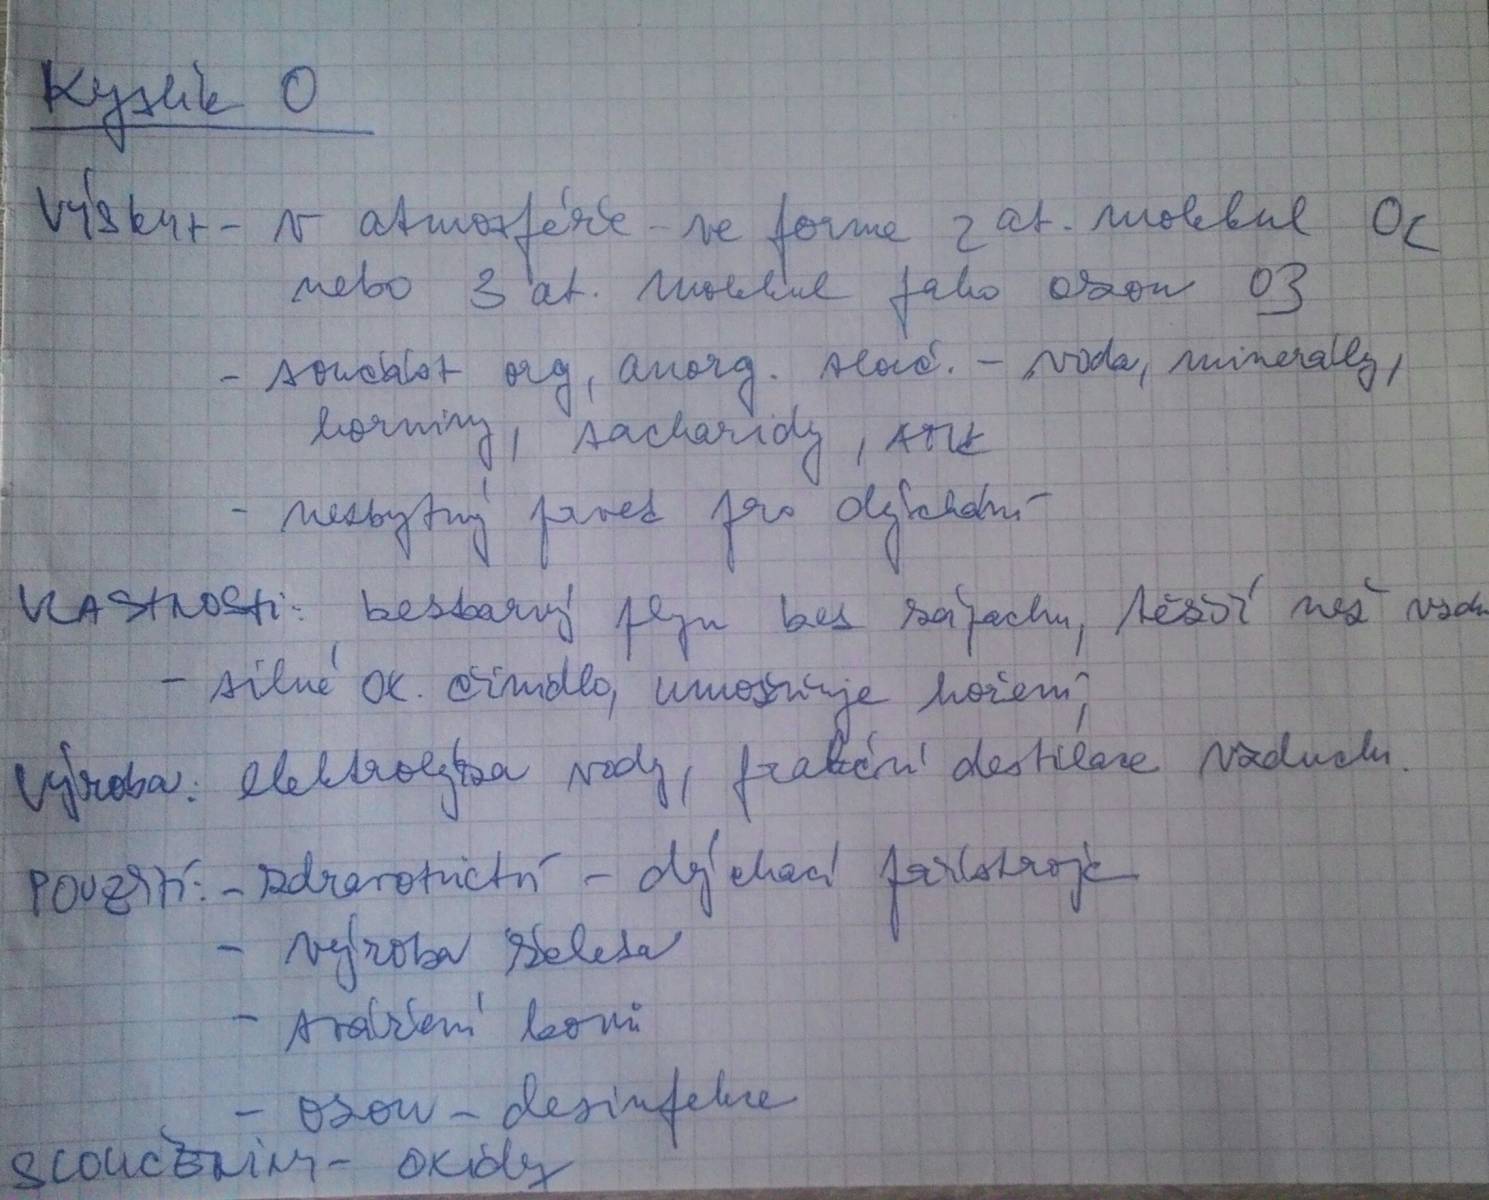 Kyslík O
Výskyt - v atmosféře - ve forme 2 at. molekul O2
nebo 3 at. molekul jako ozon O3
- součást org, anorg. slouč. - voda, minerály,
horniny, sacharidy,
- nezbytný prvek pro dýchání
VLASTNOSTI: bezbarvý plyn bez zápachu, těžší než vzdu
- silné ox. činidlo, umožňuje hoření,
Výroba: elektrolýza vody, frakční destilace vzduchu.
POUŽITÍ: - zdravotnictví - dýchací přístroje
- výroba železa
- sváření kovů
- ozon - desinfekce
SLOUČENINY - oxidy